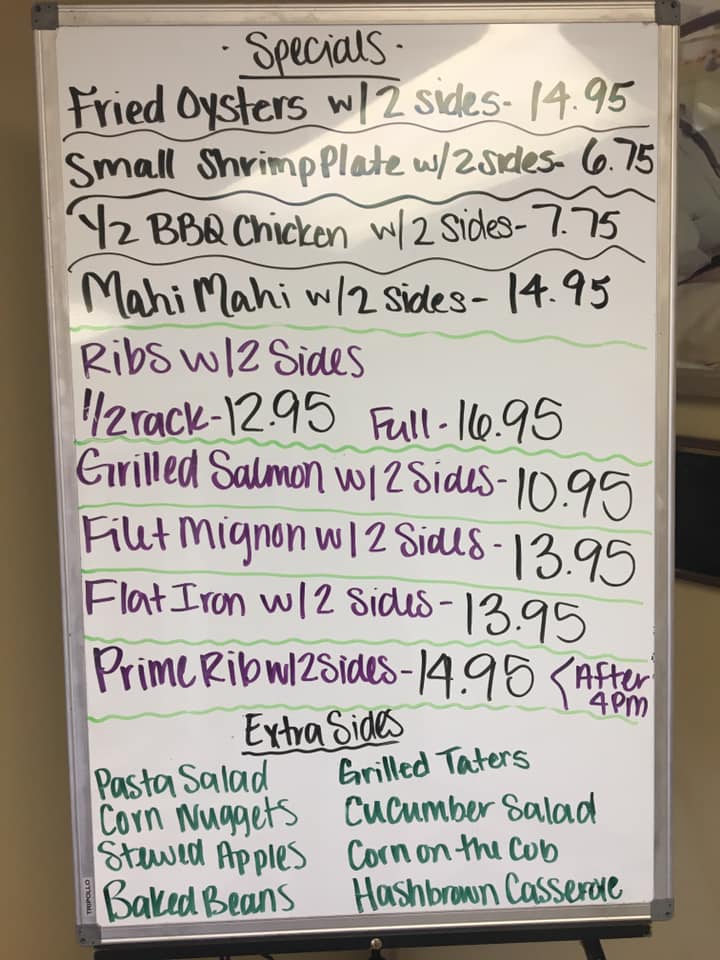 · Specials ·
Fried Oysters w/2 sides- 14.95
Small Shrimp Plate w/2 sides- 6.75
1/2 BBQ Chicken w/2 Sides- 7.75
Mahi Mahi w/2 sides- 14.95
Ribs w/2 Sides
1/2 rack-12.95 Full-16.95
Grilled Salmon w/2 Sides-10.95
Filet Mignon w/2 Sides-13.95
Flat Iron w/2 Sides-13.95
Prime Rib w/2 Sides-14.95 After
4pm
Extra Sides
Pasta Salad Grilled Taters
Corn Nuggets Cucumber Salad
Stewed Apples Corn on the Cob
Baked Beans Hashbrown Casserole
TRIPOLLO